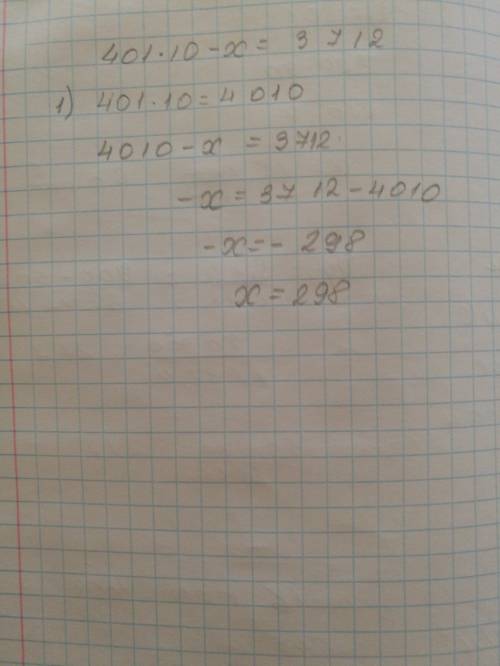 401·10-x= 3 712
1) 401·10=4 010
4010-x = 3712
-x=3712-4010
-x=- 298
x=298